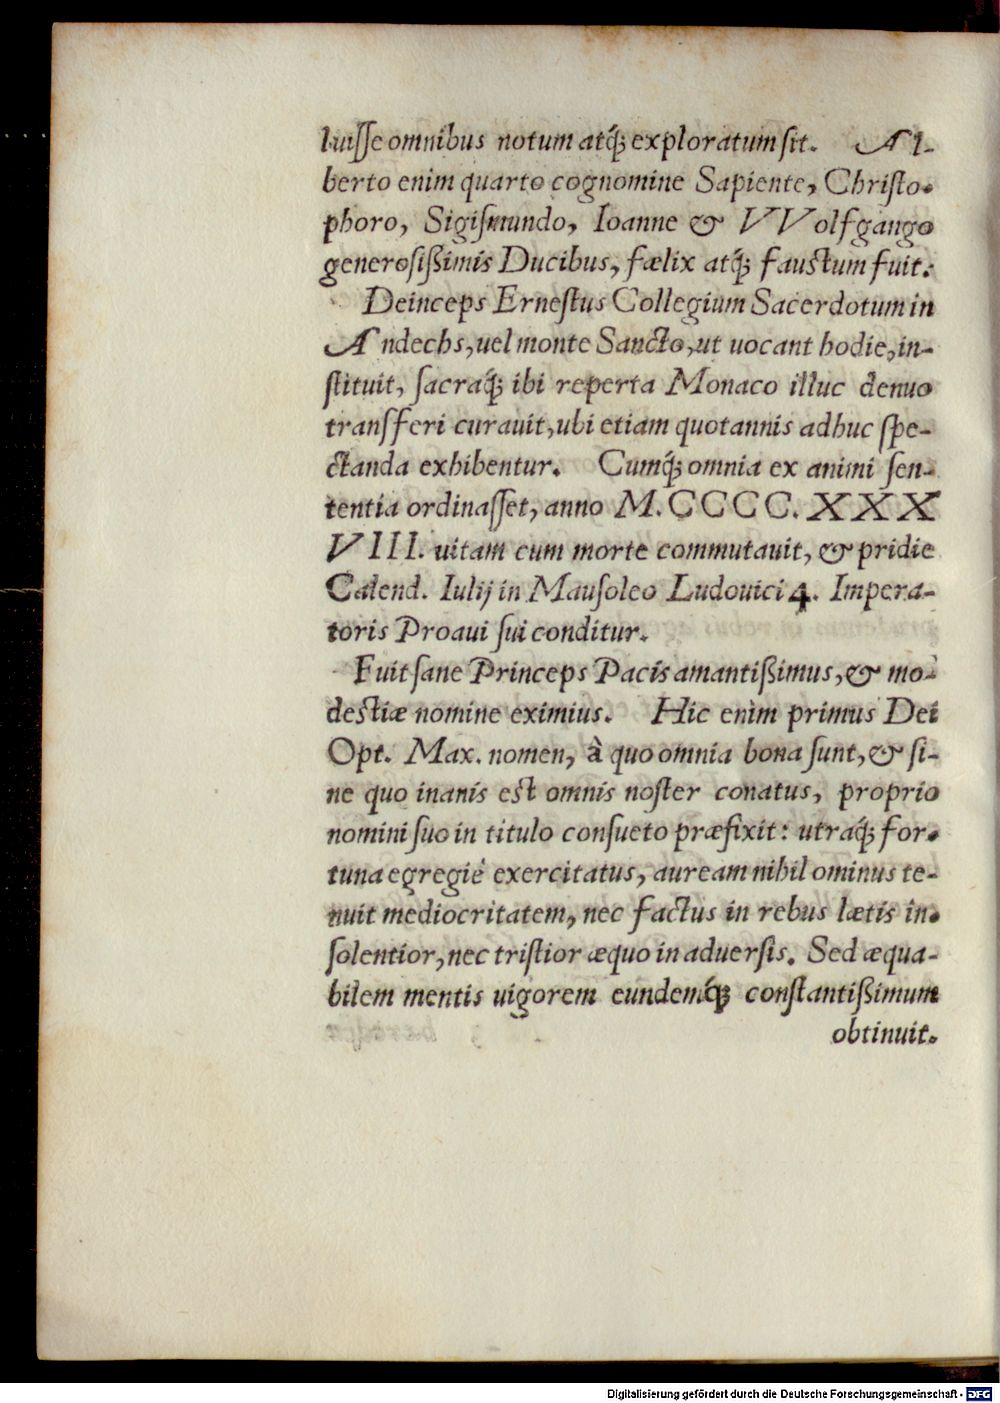 luisse omnibus notum atq́; exploratum sit. Al-
berto enim quarto cognomine Sapiente, Christo-
phoro, Sigismundo, Ioanne & VVolfgango
generosißimis Ducibus, fælix atq́; faustum fuit.
Deinceps Ernestus Collegium Sacerdotum in
Andechs, uel monte Sancto, ut uocant hodie, in-
stituit, sacraq́; ibi reperta Monaco illuc denuo
transferri curauit, ubi etiam quotannis adhuc spe-
ctanda exhibentur. Cumq́; omnia ex animi sen-
tentia ordinasset, anno M.CCCC.XXX
VIII. uitam cum morte commutauit, & pridie
Calend. Iulij in Mausoleo Ludouici 4. Impera-
toris Proaui sui conditur.
Fuit sane Princeps Pacis amantißimus, & mo-
destiæ nomine eximius. Hic enim primus Dei
Opt. Max. nomen, à quo omnia bona sunt, & si-
ne quo inanis est omnis noster conatus, proprio
nomini suo in titulo consueto præfixit: utraq́; for-
tuna egregiè exercitatus, auream nihilominus te-
nuit mediocritatem, nec factus in rebus lætis in-
solentior, nec tristior æquo in aduersis. Sed æqua-
bilem mentis uigorem eundemq́; constantißimum
obtinuit.
Digitalisierung gefördert durch die Deutsche Forschungsgemeinschaft - DFG